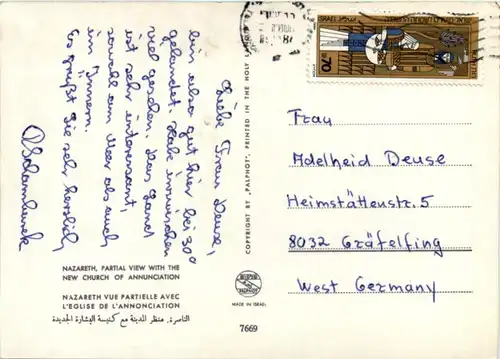 Liebe Frau Deuse,
bin also gut hier bei 30°
gelandet. Habe inzwischen
viel gesehen. Das Land
ist sehr interessant,
sowohl am Meer als auch
im Innern.
Es grüßt Sie sehr herzlich
NAZARETH, PARTIAL VIEW WITH THE
NEW CHURCH OF ANNUNCIATION
NAZARETH VUE PARTIELLE AVEC
L'EGLISE DE L'ANNONCIATION
الناصرة. منظر المدينة مع كنيسة البشارة الجديدة
COPYRIGHT BY "PALPHOT", PRINTED IN THE HOLY
MADE IN ISRAEL
7669
ISRAEL
70
Frau
Adelheid Deuse
Heimstättenstr. 5
8032 Gräfelfing
West Germany